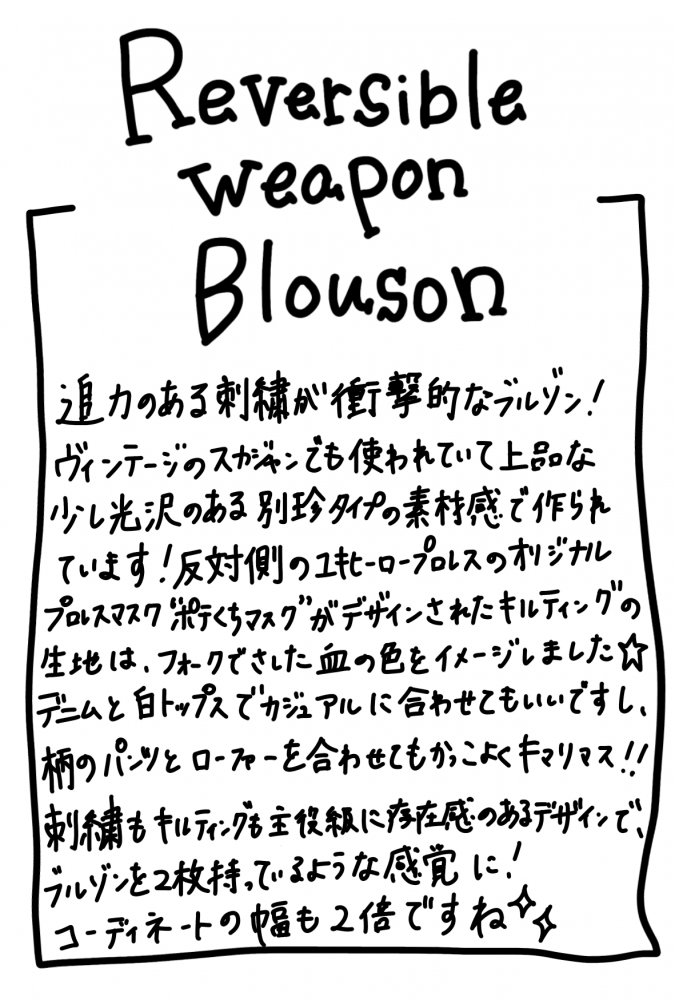 Reversible
weapon
Blouson
迫力のある刺繍が衝撃的なブルゾン!
ヴィンテージのスカジャンでも使われていて上品な
少し光沢のある別珍タイプの素材感で作られ
ています!反対側のユキヒーロープロレスのオリジナル
プロレスマスク"ポテくちマスク"がデザインされたキルティングの
生地は、フォークでさした血の色をイメージしました☆
デニムと白トップスでカジュアルに合わせてもいいですし、
柄のパンツとローファーを合わせてもかっこよくキマリマス!!
刺繍もキルティングも主役級に存在感のあるデザインで、
ブルゾンを2枚持っているような感覚に!
コーディネートの幅も2倍ですね✨